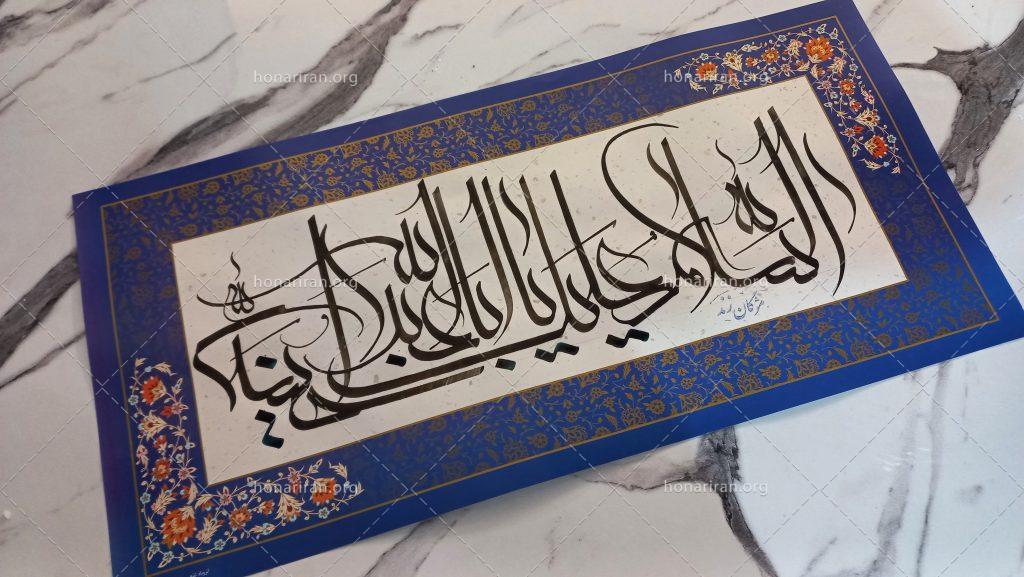 honariran.org honariran.org
السلام علیک یا ابا عبدالله
honariran.org honariran.org
مژگان زند
honariran.org honariran.org